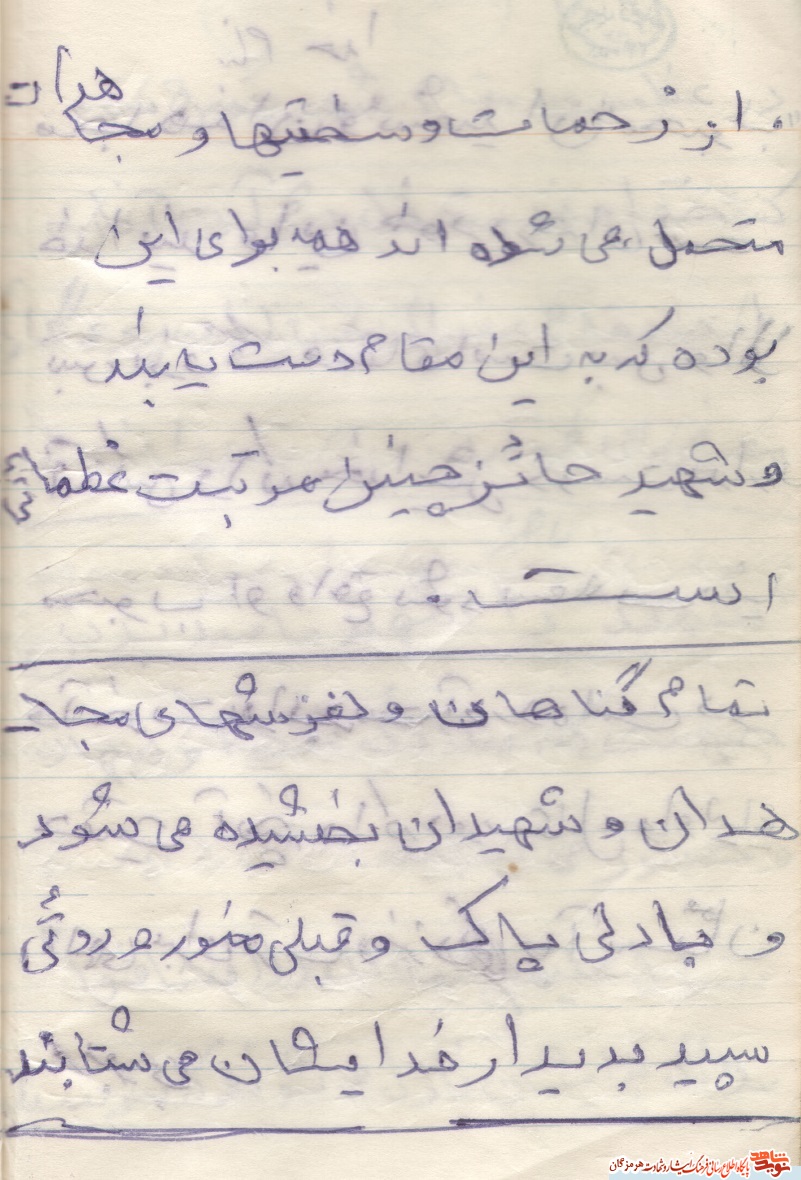 از زحمات و سختیها و مجاهدات
متحمل می شده اند همه برای این
بوده که به این مقام دست یابند
و شهید حائز چنین مرتبت عظمائی
است.
تمام گناهان و لغزشهای مجا-
هدان و شهیدان بخشیده می شود
و با دلی پاک و قبلی منور و روئی
سپید بدیدار خدایشان می شتابند
نوید شاهد پایگاه اطلاع رسانی فرهنگ ایثار و شهادت هرمزگان